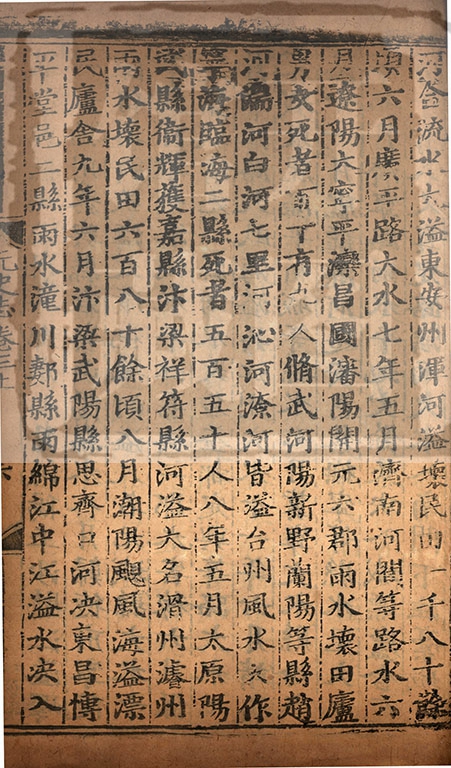 河合流水大溢東安州渾河溢壞民田一千八十餘
頃六月廣平路大水七年五月濟南河間等路水六
月遼陽大寧平灤昌國瀋陽開元六郡雨水壞田廬
男女死者百十有九人脩武河陽新野蘭陽等縣趙
河湍河白河七里河沁河潦河皆溢台州風水大作
寧海臨海二縣死者五百五十人八年五月太原陽
武縣衞輝獲嘉縣汴梁祥符縣河溢大名滑州濬州
雨水壞民田六百八十餘頃八月潮陽颶風海溢漂
民廬舍九年六月汴梁武陽縣思齊口河决東昌博
平堂邑二縣雨水潼川郪縣雨綿江中江溢水决入
元史志卷三上 六